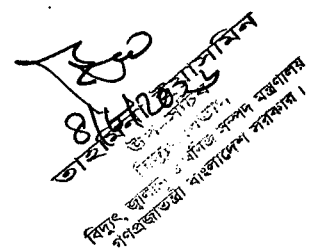 তাহমিনা ইয়াসমিন
উপ-সচিব
বিদ্যুৎ বিভাগ
বিদ্যুৎ, জ্বালানি ও খনিজ সম্পদ মন্ত্রণালয়
গণপ্রজাতন্ত্রী বাংলাদেশ সরকার।